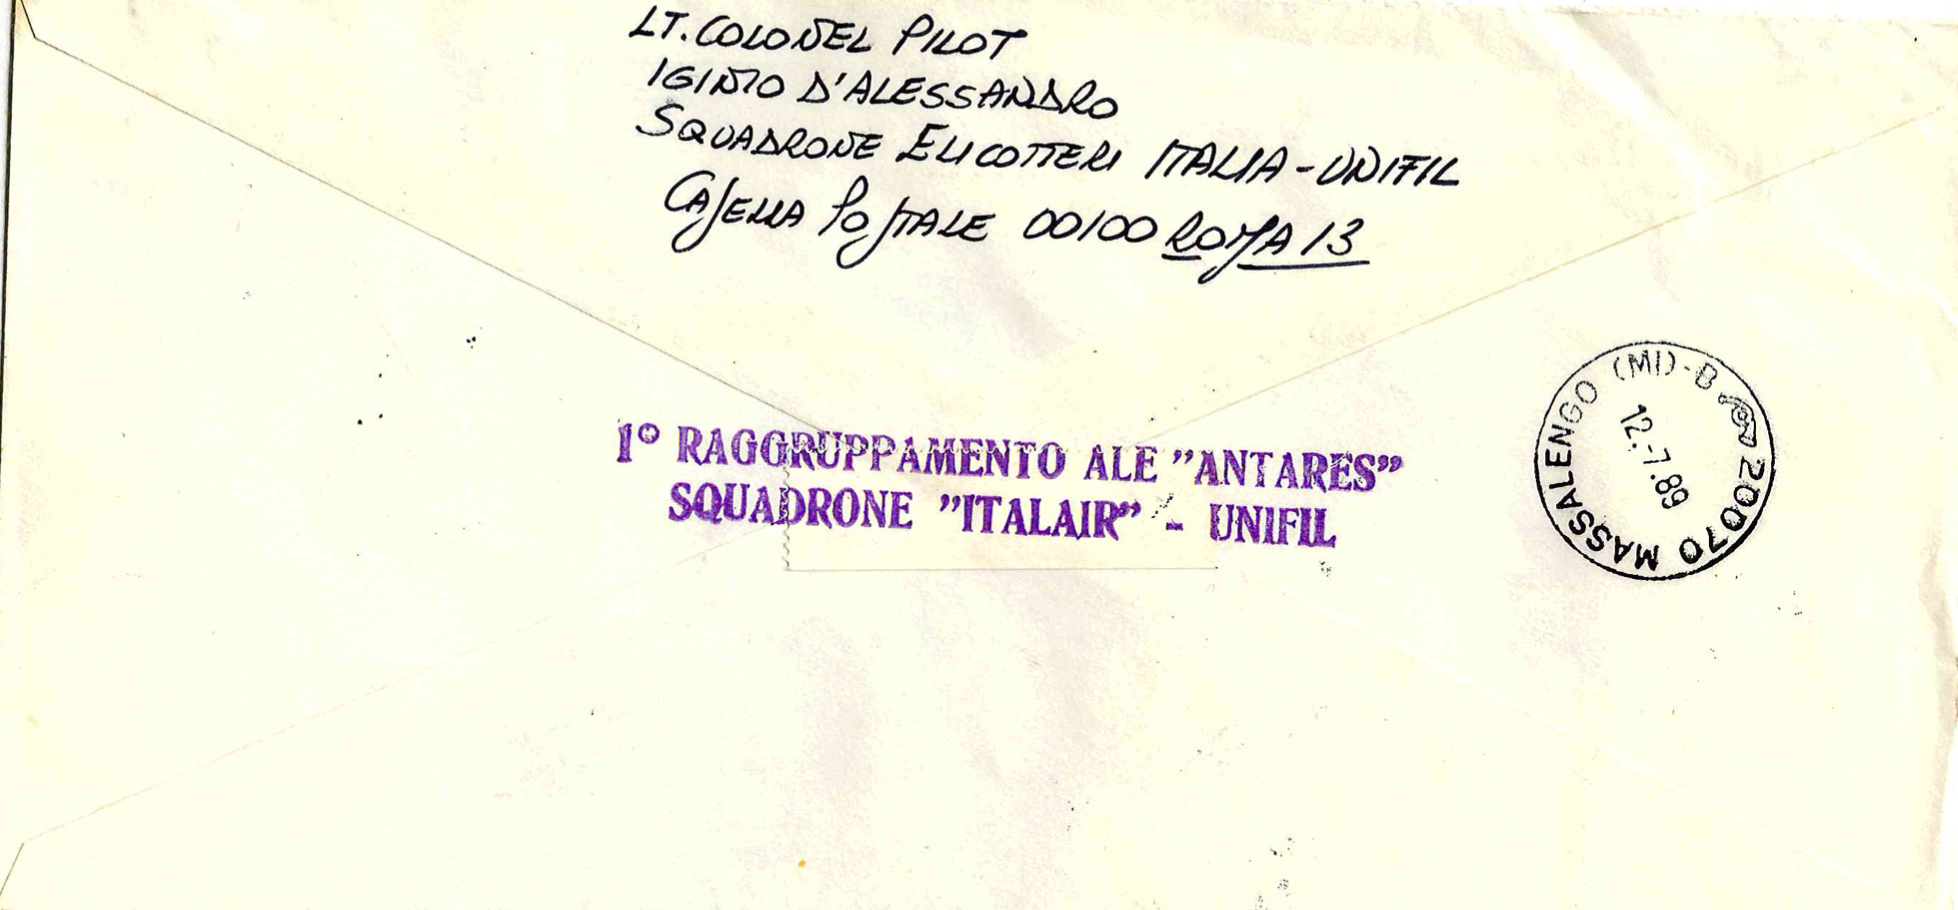 LT. COLONEL PILOT
IGINIO D'ALESSANDRO
SQUADRONE ELICOTTERI ITALIA - UNIFIL
CASELLA POSTALE 00100 ROMA 13
1° RAGGRUPPAMENTO ALE "ANTARES"
SQUADRONE "ITALAIR" - UNIFIL
20070 MASSALENGO (MI) - B
12.-7.89